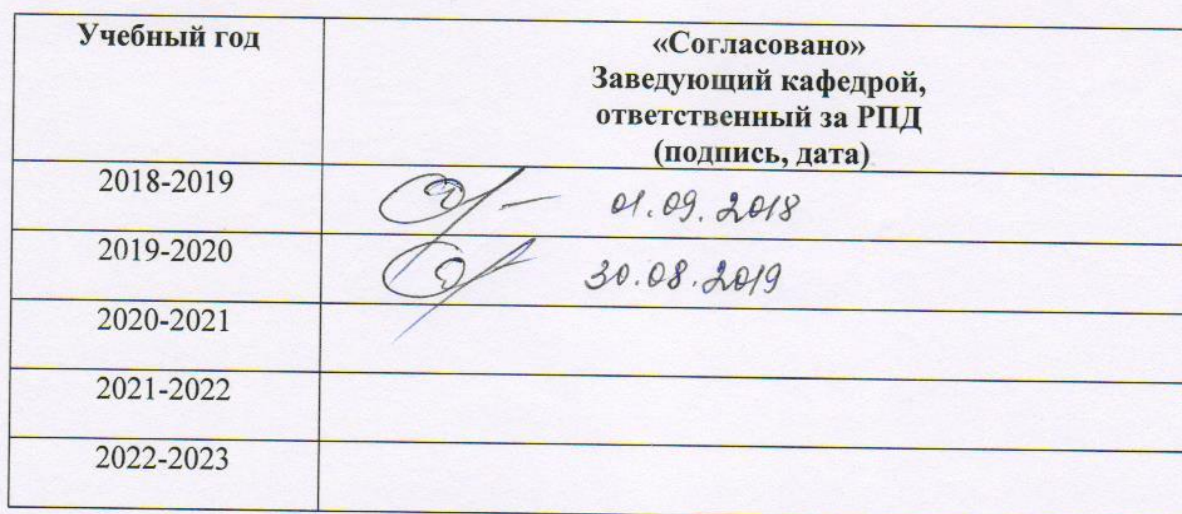 Учебный год
«Согласовано»
Заведующий кафедрой,
ответственный за РПД
(подпись, дата)
2018-2019
01.09.2018
2019-2020
30.08.2019
2020-2021
2021-2022
2022-2023